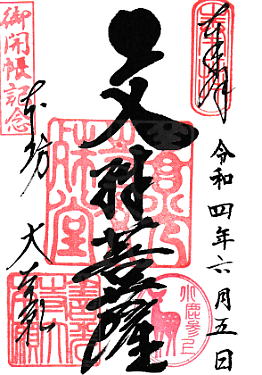 奉拝
令和四年六月五日
文殊菩薩
御開帳記念
本坊
大本願